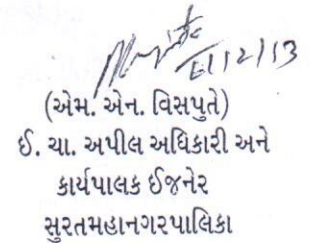 6/12/13
(એમ. એન. વિસપુતે)
ઈ. ચા. અપીલ અધિકારી અને
કાર્યપાલક ઈજનેર
સુરતમહાનગરપાલિકા